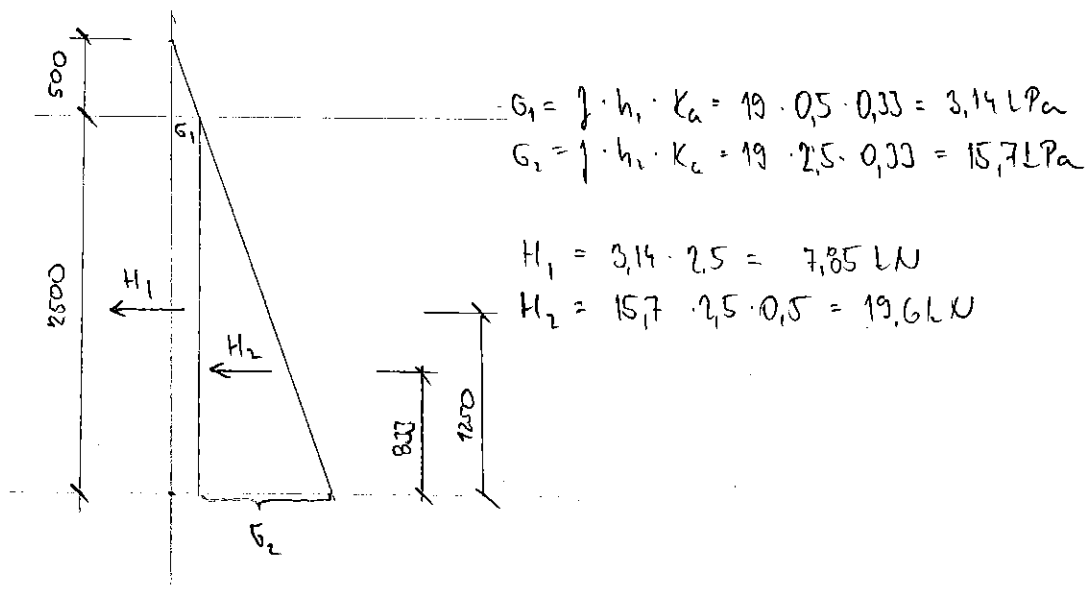 500
2500
σ₁
H₁
H₂
σ₂
833
1250
σ₁ = γ · h₁ · Kₐ = 19 · 0,5 · 0,33 = 3,14 kPa
σ₂ = γ · h₂ · Kₐ = 19 · 2,5 · 0,33 = 15,7 kPa
H₁ = 3,14 · 2,5 = 7,85 kN
H₂ = 15,7 · 2,5 · 0,5 = 19,6 kN